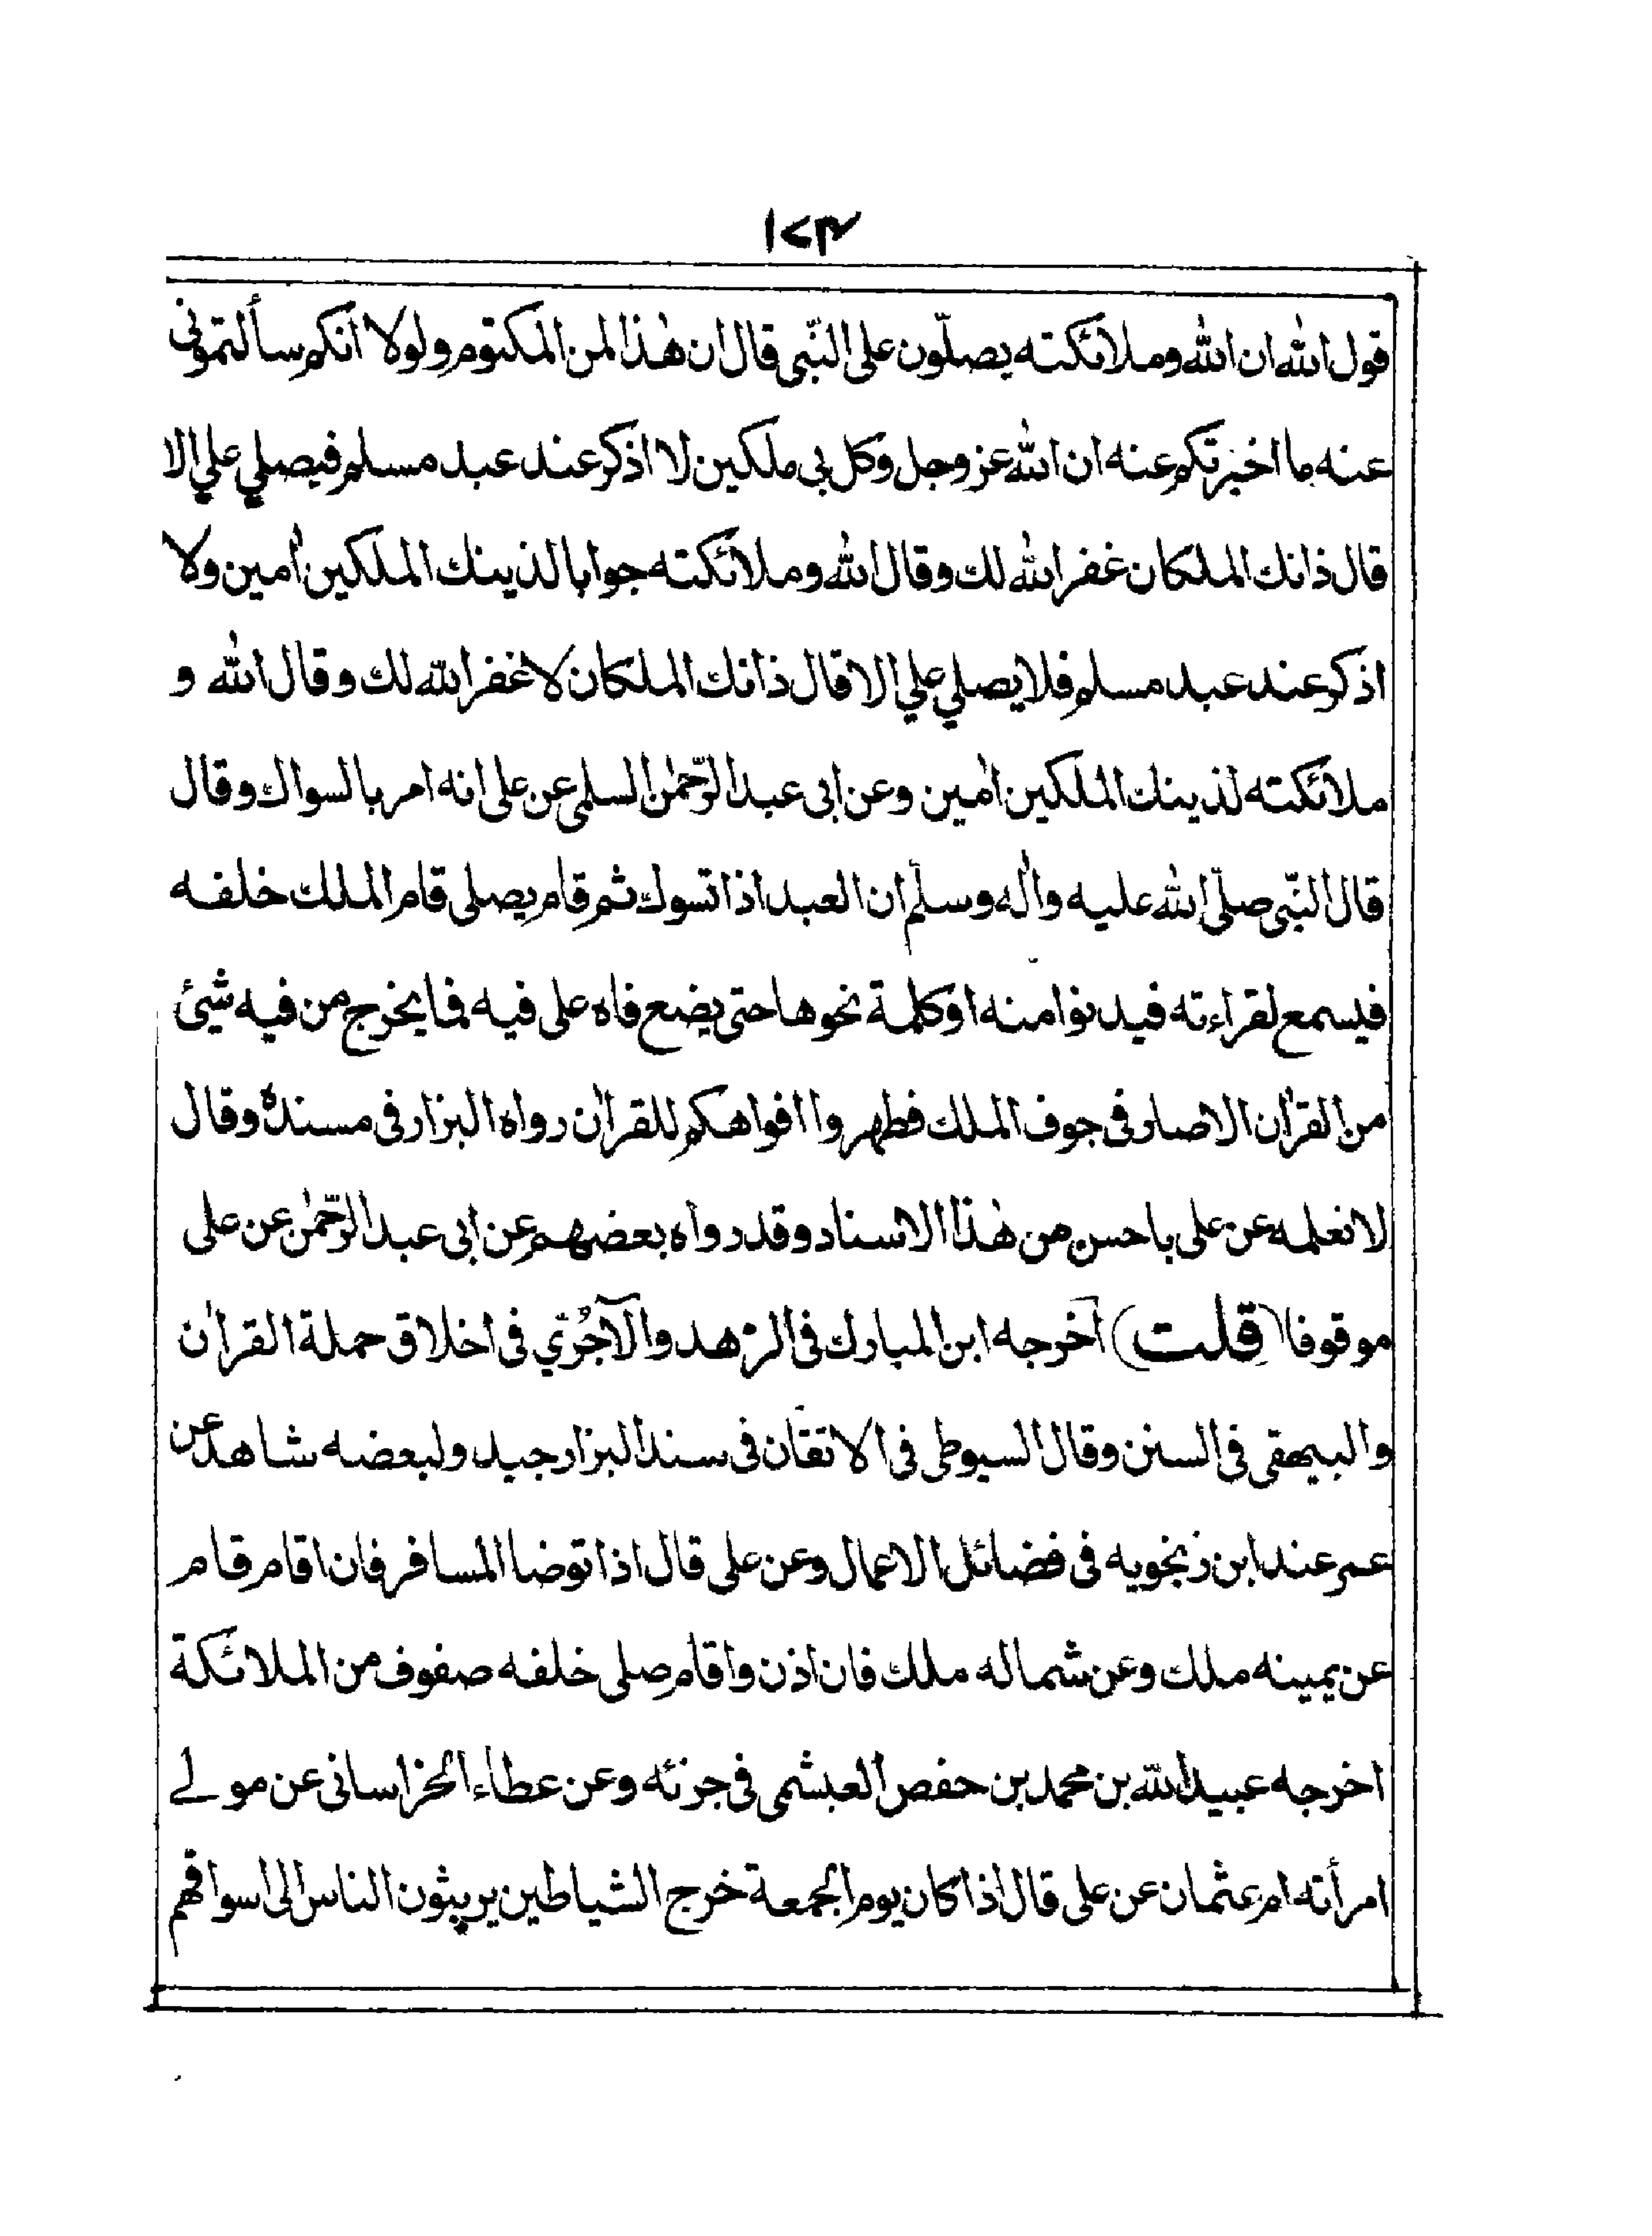 ١٧٣
قول الله ان الله وملائكته يصلّون على النّبى قال ان هٰذا لمن المكتوم ولولا انكم سألتمونى
عنه ما اخبرتكم عنه ان الله عز وجل وكل بى ملكين لا اذكر عند عبد مسلم فيصلي علي الا
قال ذانك الملكان غفر الله لك وقال الله وملائكته جوابا لذينك الملكين اٰمين ولا
اذكر عند عبد مسلم فلا يصلي علي الا قال ذانك الملكان لا غفر الله لك وقال الله و
ملائكته لذينك الملكين اٰمين وعن ابى عبد الرّحمٰن السلمى عن على انه امر بالسواك وقال
قال النّبى صلّى الله عليه واٰله وسلّم ان العبد اذا تسوك ثم قام يصلى قام الملك خلفه
فيسمع لقراءته فيدنوا منه او كلمة نحوها حتى يضع فاه على فيه فما يخرج من فيه شيئ
من القراٰن الا صار فى جوف الملك فطهروا افواهكم للقراٰن رواه البزار فى مسنده وقال
لا نعلمه عن على باحسن من هٰذا الاسناد وقد رواه بعضهم عن ابى عبد الرّحمٰن عن على
موقوفا (قلت) اخرجه ابن المبارك فى الزهد والآجُرّي فى اخلاق حملة القراٰن
والبيهقى فى السنن وقال السيوطى فى الاتقان فى سند البزار جيد ولبعضه شاهد عن
عمر عند ابن زنجويه فى فضائل الاعمال وعن على قال اذا توضا المسافر فان اقام قام
عن يمينه ملك وعن شماله ملك فان اذن واقام صلى خلفه صفوف من الملائكة
اخرجه عبيد الله بن محمد بن حفص العبشمى فى جزئه وعن عطاء الخراسانى عن مولے
امرأته ام عثمان عن على قال اذا كان يوم الجمعة خرج الشياطين يربثون الناس الى اسواقهم